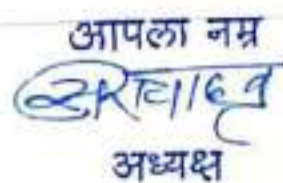 आपला नम्र
अध्यक्ष